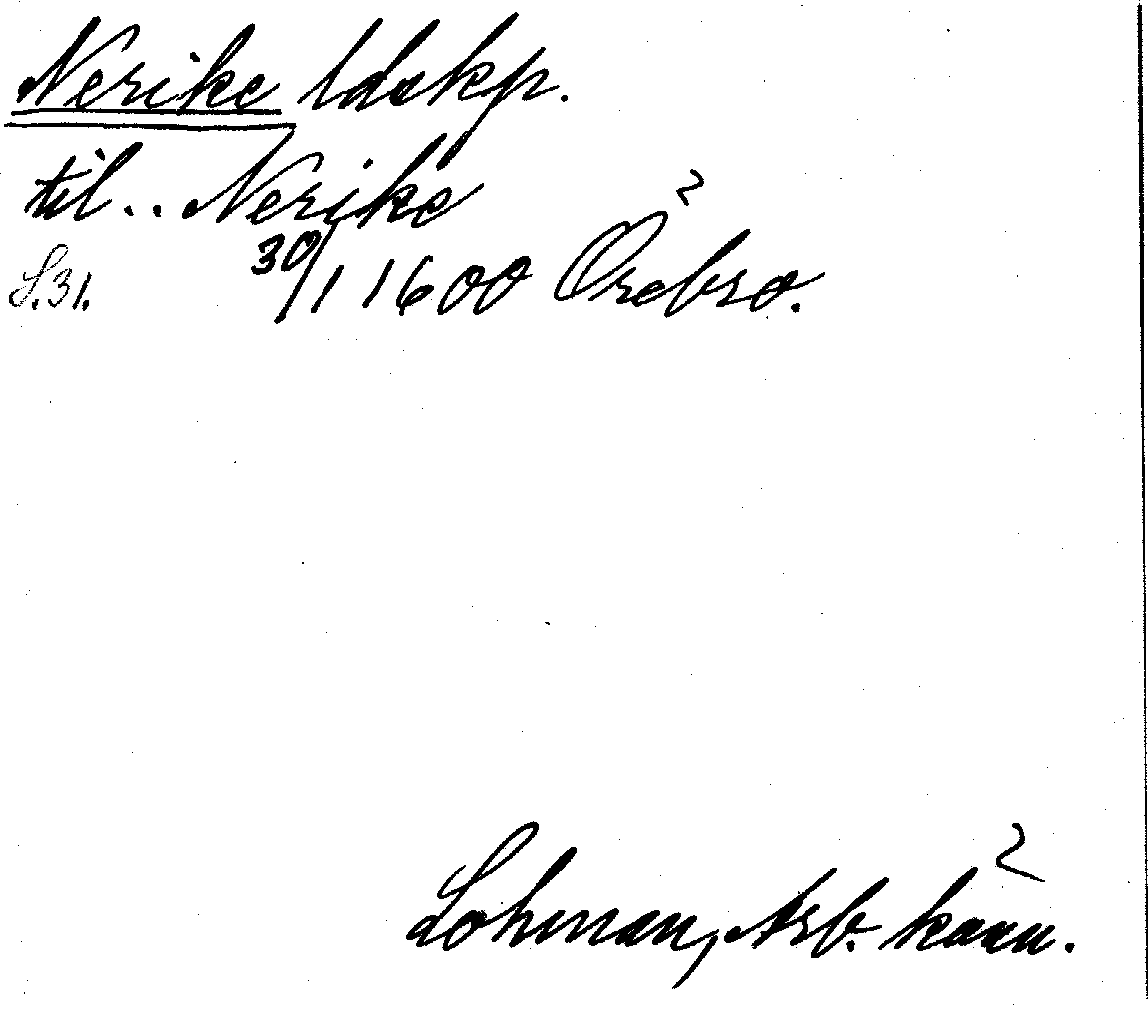 Nerike ldskp.
til .. Nerike
S.31. 30/1 1600 Örebro.
Lohman, Arb. känn.